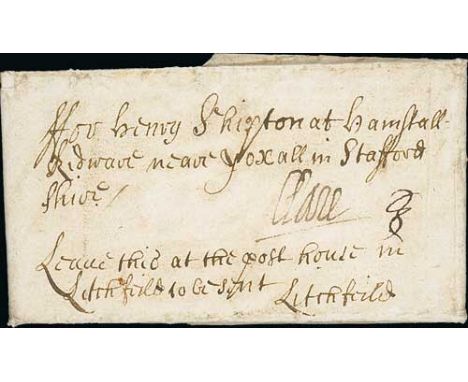 ffor Henry Shipton at Hamstall
Ridware neare yoxall in Stafford
shire
Clare
Leaue this at the post house in
Litchfeild to be sent Litchfeild